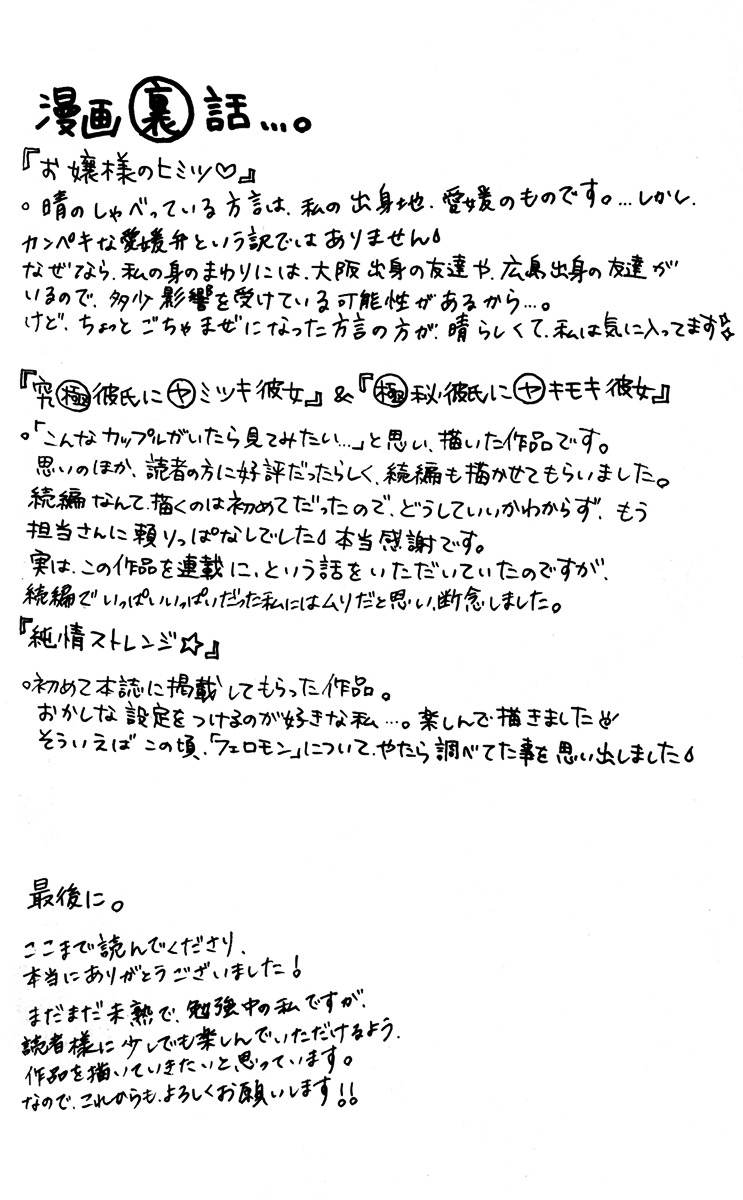 漫画㊙裏話…。
『お嬢様のヒミツ♡』
。晴のしゃべっている方言は、私の出身地、愛媛のものです。…しかし、
カンペキな愛媛弁という訳ではありません
なぜなら、私の身のまわりには、大阪出身の友達や、広島出身の友達が
いるので、多少影響を受けている可能性があるから…。
けど、ちょっとごちゃまぜになった方言の方が、晴らしくて、私は気に入ってます☆
『究極彼氏にヤミツキ彼女』&『極秘彼氏にヤキモキ彼女』
。「こんなカップルがいたら見てみたい…」と思い、描いた作品です。
思いのほか、読者の方に好評だったらしく、続編も描かせてもらいました。
続編なんて、描くのは初めてだったので、どうしていいかわからず、もう
担当さんに頼りっぱなしでした 本当感謝です。
実は、この作品を連載に、という話をいただいていたのですが、
続編でいっぱいいっぱいだった私にはムリだと思い、断念しました。
『純情ストレンジ☆』
。初めて本誌に掲載してもらった作品。
おかしな設定をつけるのが好きな私…。楽しんで描きました
そういえばこの頃、「フェロモン」について、やたら調べてた事を思い出しました
最後に。
ここまで読んでくださり、
本当にありがとうございました！
まだまだ未熟で、勉強中の私ですが、
読者様に少しでも楽しんでいただけるよう、
作品を描いていきたいと思っています。
なので、これからも、よろしくお願いします!!